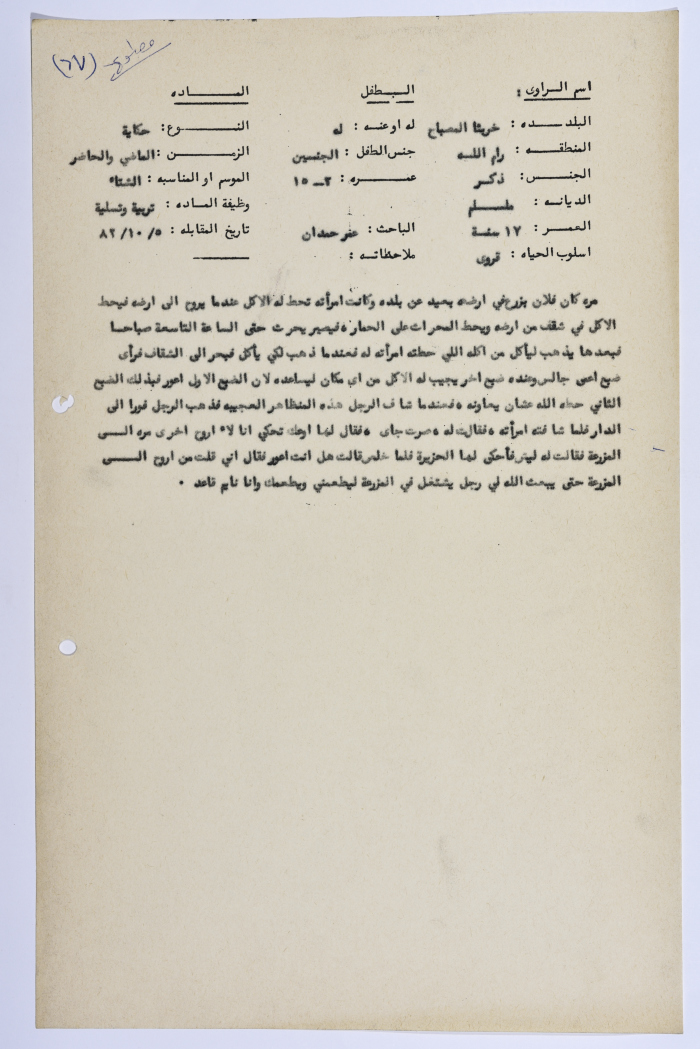 (٦٧) مطبوع
اسم الراوى : الطفل المادة
البلده : خربثا المصباح له او عنه : له النوع : حكاية
المنطقه : رام الله جنس الطفل : الجنسين الزمن : الماضي والحاضر
الجنس : ذكر عمره : ٣ــ ١٥ الموسم او المناسبه : الشتاء
الديانه : مسلم وظيفة الماده : تربية وتسلية
العمر : ١٧ سنة الباحث : عمر حمدان تاريخ المقابله : ٥/ ١٠/ ٨٢
اسلوب الحياه : قروى ملاحظاته :
مره كان فلان بزرع في ارضه بعيد عن بلده وكانت امرأته تحط له الاكل عندما يروح الى ارضه فيحط
الاكل في شقف من ارضه ويحط المحراث على الحماره فيصير يحرث حتى الساعة التاسعة صباحا
فبعدها يذهب ليأكل من اكله اللي حطته امرأته له فعندما ذهب لكي يأكل فبحر الى الشقاف فرأى
ضبع اعمى جالس وعنده ضبع اخر يجيب له الاكل من اي مكان ليساعده لان الضبع الاول اعور فبذلك الضبع
الثاني حطه الله عشان يعاونه ه فعندما شاف الرجل هذه المنظاهر العجيبه فذهب الرجل فورا الى
الدار فلما شافته امرأته ه فقالت له ه صرت جاى ه فقال لها اوعك تحكي انا لاء اروح اخرى مره الــى
المزرعة فقالت له ليش فأحكى لها الحزيرة فلما خلص قالت هل انت اعور فقال اني قلت من اروح الــى
المزرعة حتى يبعث الله لي رجل يشتغل في المزرعة ليطعمني ويطعمك وانا نايم قاعد ٠